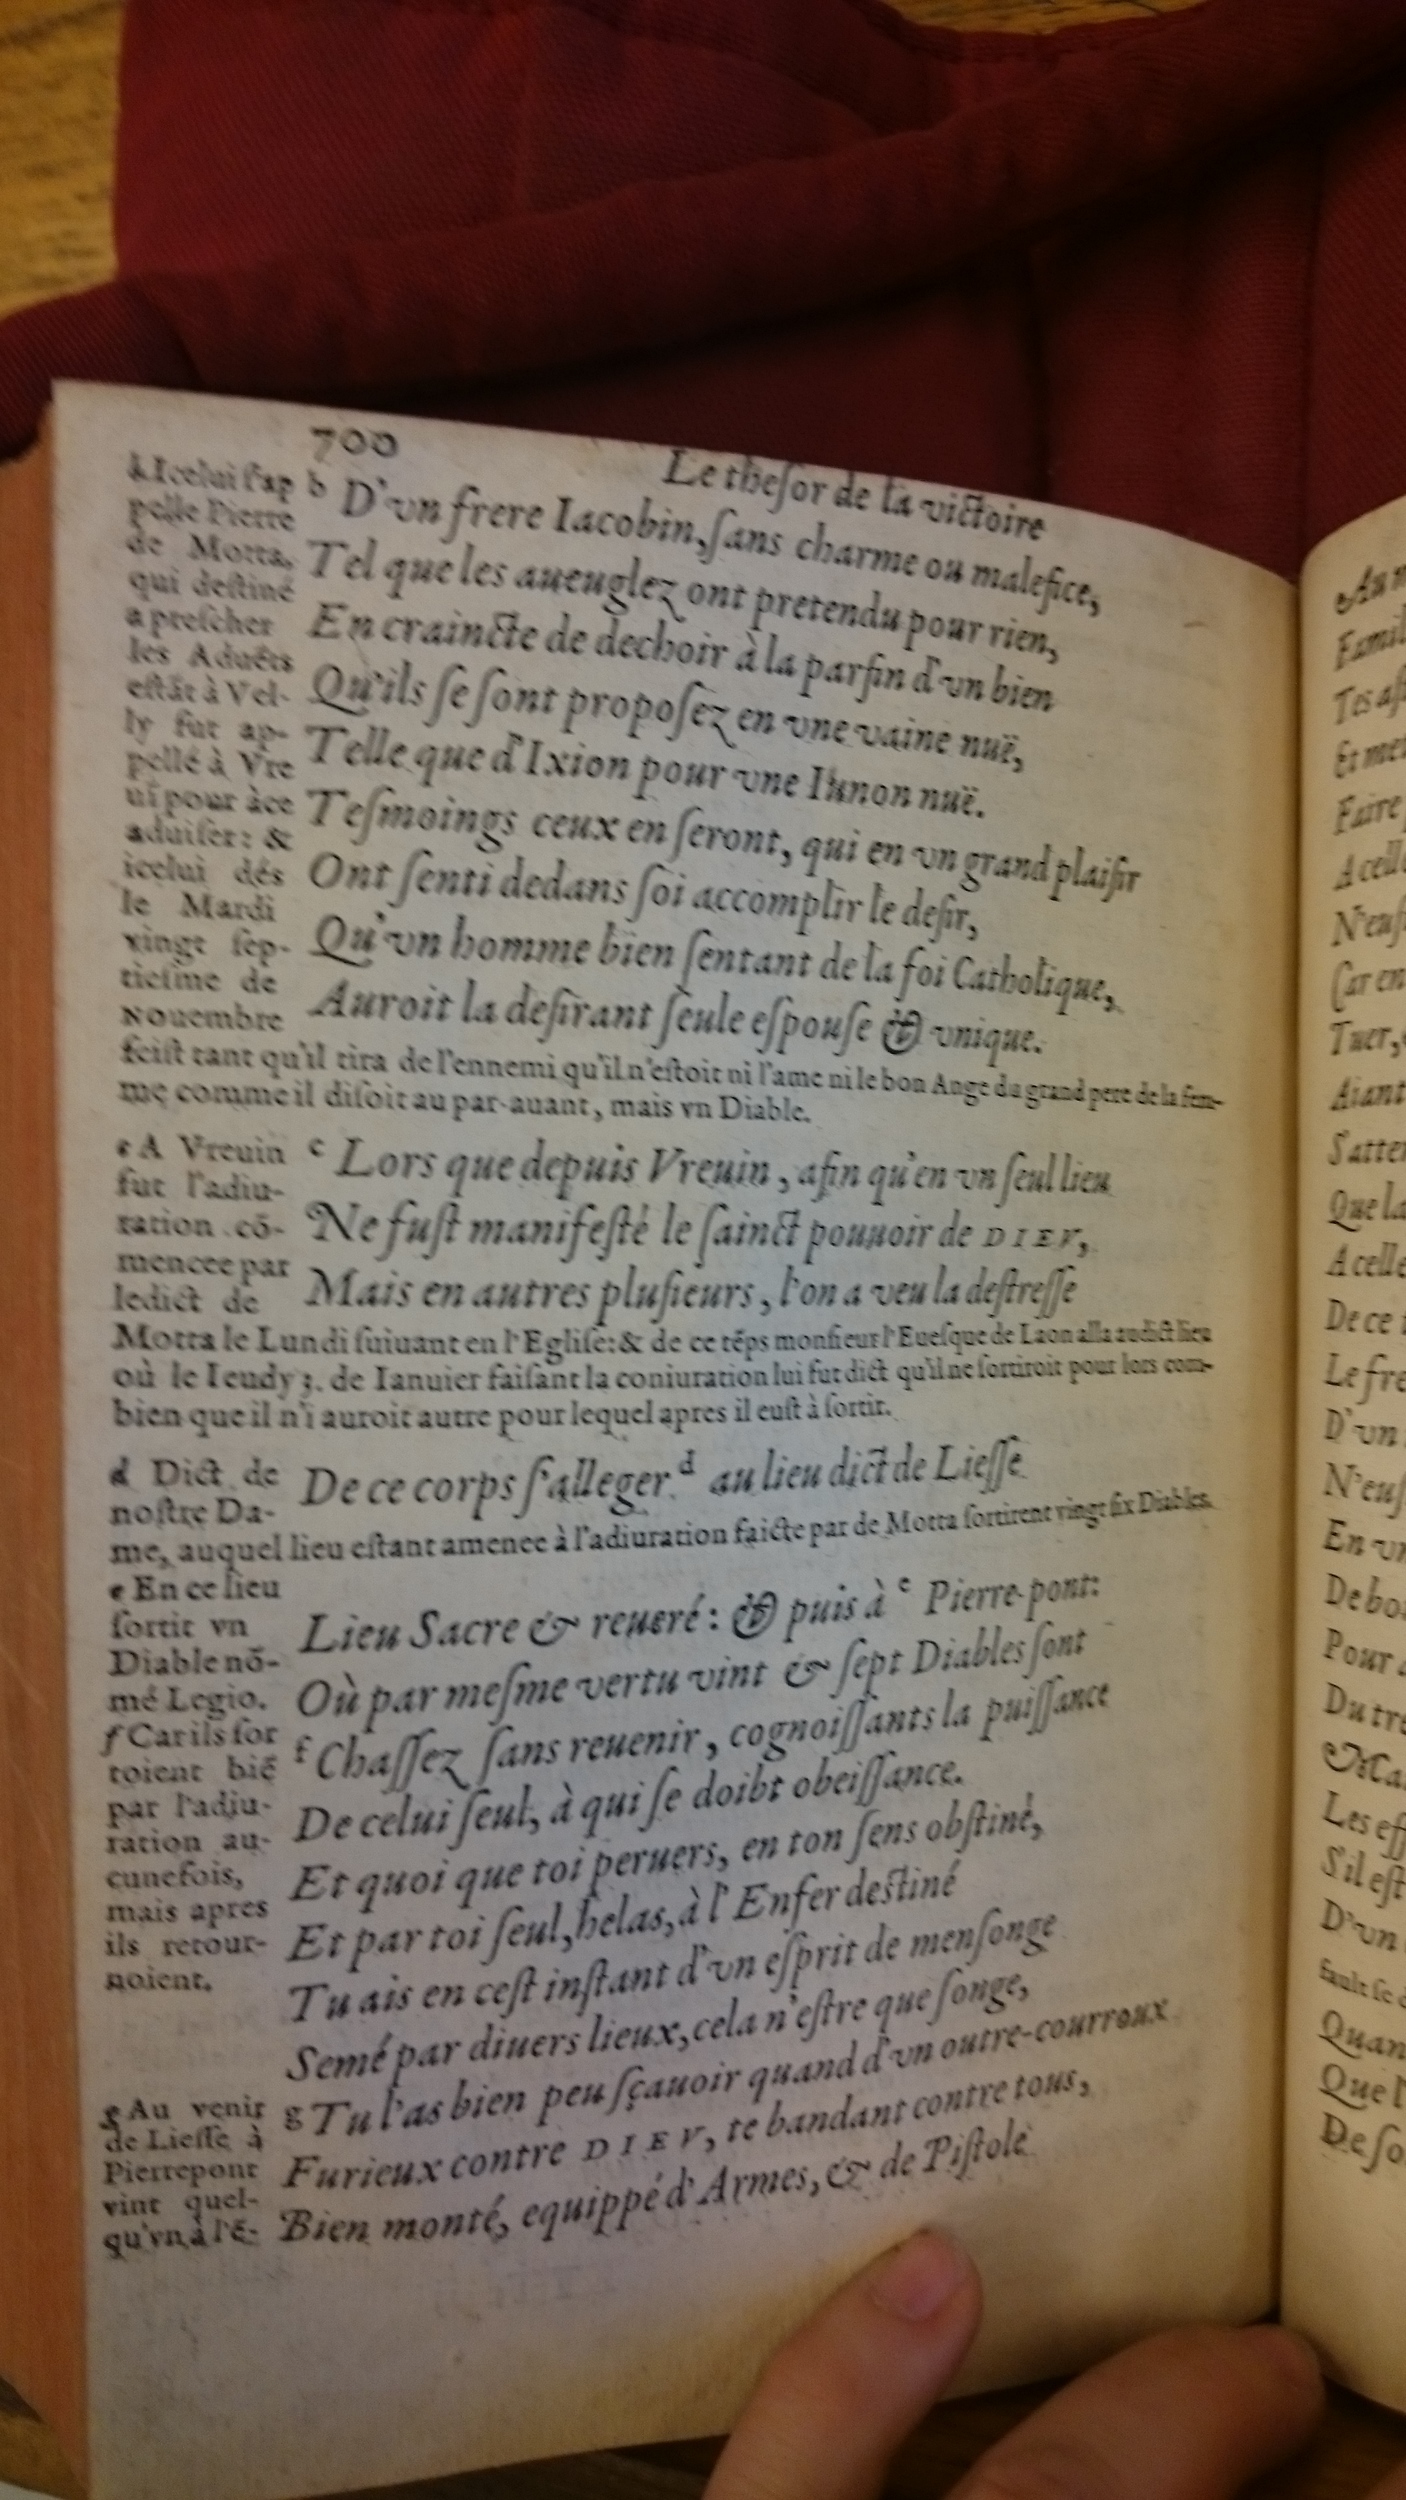 700
Le theſor de la victoire
b Icelui ſ'ap
pelle Pierre
de Motta,
qui deſtiné
a preſcher
les Aduẽts
eſtãt à Vel-
ly fut ap-
pellé à Vre
uĩ pour àce
aduiſer: &
icelui dés
le Mardi
vingt ſep-
tieſme de
Nouembre
b D'vn frere Iacobin, ſans charme ou malefice,
Tel que les aueuglez ont pretendu pour rien,
En craincte de dechoir à la parfin d'vn bien
Qu'ils ſe ſont propoſez en vne vaine nuë,
Telle que d'Ixion pour vne Iunon nuë.
Teſmoings ceux en ſeront, qui en vn grand plaiſir
Ont ſenti dedans ſoi accomplir le deſir,
Qu'vn homme bien ſentant de la foi Catholique,
Auroit la deſirant ſeule eſpouſe & vnique.
feiſt tant qu'il tira de l'ennemi qu'il n'eſtoit ni l'ame ni le bon Ange du grand pere de la fem-
me comme il diſoit au par-auant, mais vn Diable.
c A Vreuin
fut l'adiu-
ration cõ-
mencee par
ledict de
c Lors que depuis Vreuin, afin qu'en vn ſeul lieu
Ne fuſt manifeſté le ſainct pouuoir de DIEV,
Mais en autres pluſieurs, l'on a veu la deſtreſſe
Motta le Lundi ſuiuant en l'Egliſe: & de ce tẽps monſieur l'Eueſque de Laon alla audict lieu
où le Ieudy 3. de Ianuier faiſant la coniuration lui fut dict qu'il ne ſortiroit pour lors com-
bien que il n'i auroit autre pour lequel apres il euſt à ſortir.
d Dict de
noſtre Da-
De ce corps ſ'alleger d au lieu dict de Lieſſe
me, auquel lieu eſtant amenee à l'adiuration faicte par de Motta ſortirent vingt ſix Diables.
e En ce lieu
ſortit vn
Diable nõ-
mé Legio.
f Car ils ſor
toient biẽ
par l'adiu-
ration au-
cunefois,
mais apres
ils retour-
noient.
Lieu Sacre & reueré: & puis à e Pierre-pont:
Où par meſme vertu vint & ſept Diables ſont
f Chaſſez ſans reuenir, cognoiſſants la puiſſance
De celui ſeul, à qui ſe doibt obeiſſance.
Et quoi que toi peruers, en ton ſens obſtiné,
Et par toi ſeul, helas, à l'Enfer deſtiné
Tu ais en ceſt inſtant d'vn eſprit de menſonge
Semé par diuers lieux, cela n'eſtre que ſonge,
g Tu l'as bien peu ſçauoir quand d'vn outre-courroux
Furieux contre DIEV, te bandant contre tous,
Bien monté, equippé d'Armes, & de Piſtole
g Au venir
de Lieſſe à
Pierrepont
vint quel-
qu'vn à l'ẽ-
Au
Famil
Tes aſ
Et mer
Faire
A cell
N'euſ
Car en
Tuer,
Aiant
S'atter
Que la
A celle
De ce
Le fre
D'vn
N'euſ
En vn
De bo
Pour
Du tre
Ma
Les eff
S'il eſt
D'vn
fault ſe
Quan
Que l
De ſo